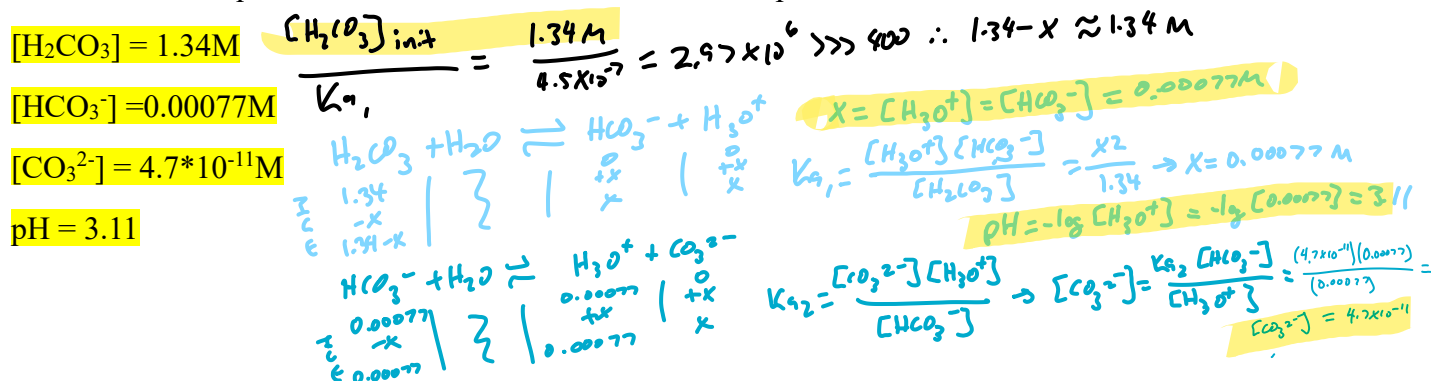 [H₂CO₃] = 1.34M
[HCO₃⁻] =0.00077M
[CO₃²⁻] = 4.7*10⁻¹¹M
pH = 3.11
[H₂CO₃]init / Ka₁ = 1.34 M / 4.5x10⁻⁷ = 2.97 x10⁶ >>> 400 ∴ 1.34-x ≈ 1.34 M
x = [H₃O⁺] = [HCO₃⁻] = 0.00077M
H₂CO₃ + H₂O ⇌ HCO₃⁻ + H₃O⁺
I 1.34 | | 0 | 0
C -x | | +x | +x
E 1.34-x | | x | x
Ka₁ = [H₃O⁺][HCO₃⁻] / [H₂CO₃] = x² / 1.34 → x = 0.00077 M
pH = -log [H₃O⁺] = -log [0.00077] = 3.11
HCO₃⁻ + H₂O ⇌ H₃O⁺ + CO₃²⁻
I 0.00077 | | 0.00077 | 0
C -x | | +x | +x
E 0.00077 | | 0.00077 | x
Ka₂ = [CO₃²⁻][H₃O⁺] / [HCO₃⁻] → [CO₃²⁻] = Ka₂ [HCO₃⁻] / [H₃O⁺] = (4.7x10⁻¹¹)(0.00077) / (0.00077) =
[CO₃²⁻] = 4.7x10⁻¹¹